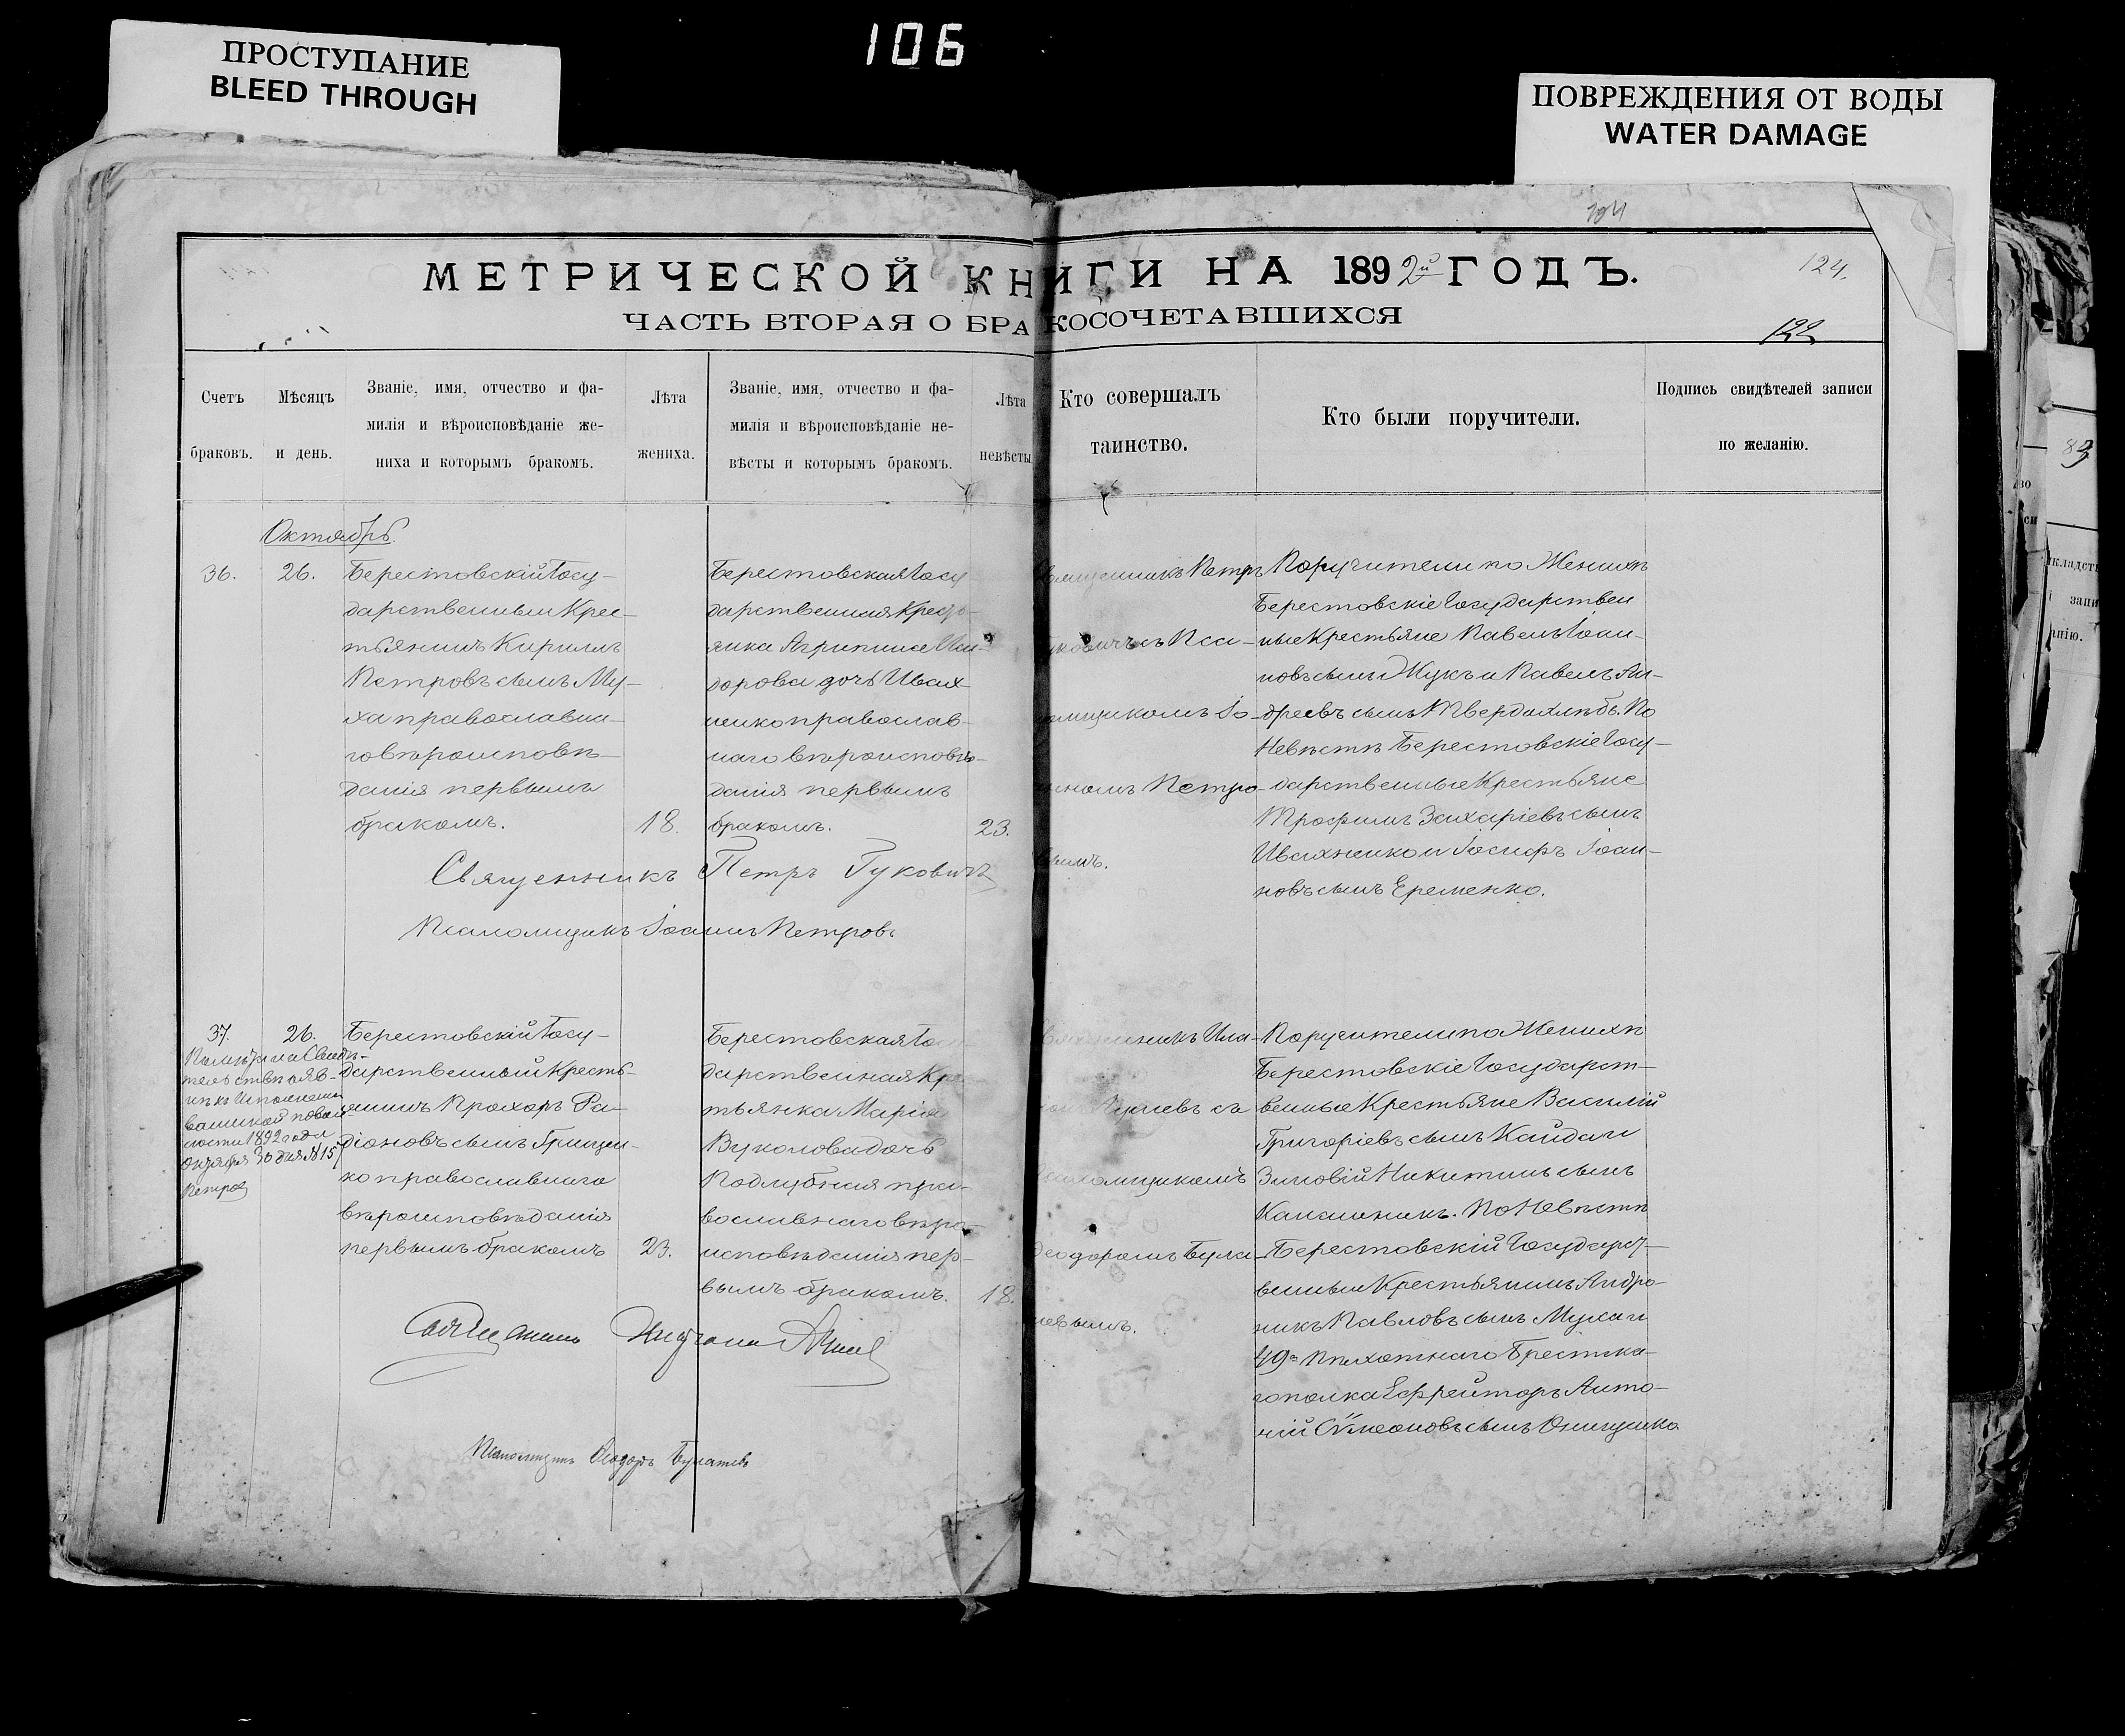 106
ПРОСТУПАНИЕ
BLEED THROUGH
ПОВРЕЖДЕНИЯ ОТ ВОДЫ
WATER DAMAGE
МЕТРИЧЕСКОЙ КНИГИ НА 1892й ГОДЪ.
124.
ЧАСТЬ ВТОРАЯ О БРАКОСОЧЕТАВШИХСЯ
122
Счетъ
браковъ.
Мѣсяцъ
и день.
Званіе, имя, отчество и фа-
милія и вѣроисповѣданіе же-
ниха и которымъ бракомъ.
Лѣта
жениха.
Званіе, имя, отчество и фа-
милія и вѣроисповѣданіе не-
вѣсты и которымъ бракомъ.
Лѣта
невѣсты
Кто совершалъ
таинство.
Кто были поручители.
Подпись свидѣтелей записи
по желанію.
Октябрь.
36.
26.
Берестовскій Госу-
дарственный Крес-
тьянинъ Кириллъ
Петровъ сынъ Му-
ха православна-
го вѣроисповѣ-
данія первымъ
бракомъ.
18.
Берестовская Госу
дарственная Кресть-
янка Агрипина Иси-
дорова дочь Ивах-
ненко православ-
наго вѣроисповѣ-
данія первымъ
бракомъ.
23.
Петръ
уковичъ съ Пса-
ломщикомъ Іо-
анномъ Петро-
вымъ.
Поручители по Женихѣ
Берестовскіе Государствен
ные Крестьяне Павелъ Іоан-
новъ сынъ Жукъ и Павелъ Ан-
дреевъ сынъ Твердохлѣбъ. По
Невѣстѣ Берестовскіе Госу-
дарственные Крестьяне
Трофимъ Захаріевъ сынъ
Ивахненко и Іосифъ Іоан-
новъ сынъ Еременко.
Священникъ Петръ Гуковичъ
Псаломщикъ Іоаннъ Петровъ
37.
26.
1892 года
Октября 30 дня № 15
Петровъ
Берестовскій Госу-
дарственный Кресть-
янинъ Прохоръ Ра-
діоновъ сынъ Грищен-
ко православнаго
вѣроисповѣданія
первымъ бракомъ
23.
Берестовская Го
дарственная Кре
тьянка Марія
Вуколова дочь
Подлубная пра-
вославнаго вѣро-
исповѣданія пер-
вымъ бракомъ.
18.
съ
аломщикомъ
еодоромъ Була-
невымъ.
Поручители по Женихѣ
Берестовскіе Государст-
венные Крестьяне Василій
Григоріевъ сынъ Кайдаш
Зиновій Никитинъ сынъ
По Невѣстѣ
Берестовскій Государст-
венный Крестьянинъ Андро-
никъ Павловъ сынъ
49го Пѣхотнаго Брестска-
го полка Ефрейторъ Анто-
ній Сѵмеоновъ сынъ Онищенко
Псаломщикъ Ѳеодоръ